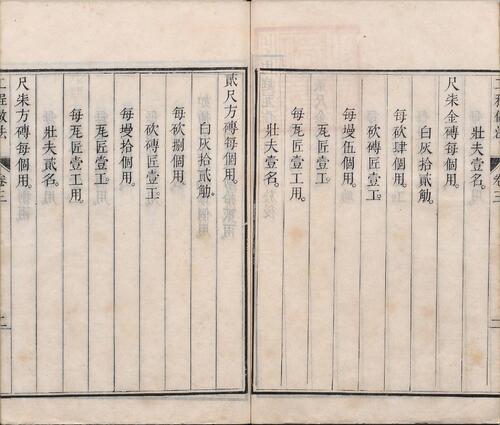 壯夫壹名。
尺柒金磚每個用。
白灰拾貳觔。
每砍肆個用。
砍磚匠壹工。
每墁伍個用。
瓦匠壹工。
每瓦匠壹工用。
壯夫壹名。
貳尺方磚每個用。
白灰拾貳觔。
每砍捌個用。
砍磚匠壹工。
每墁拾個用。
瓦匠壹工。
每瓦匠壹工用。
壯夫貳名。
尺柒方磚每個用。
工程做法
卷三